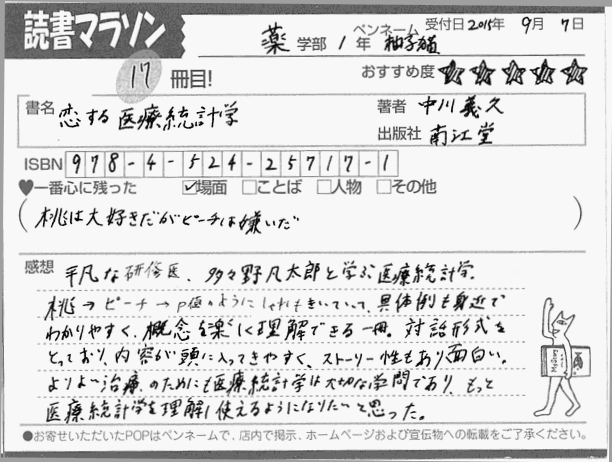 読書マラソン
薬 学部 1 年 ペンネーム 柚子猫 受付日 2015年 9月 7日
17 冊目!
おすすめ度 ★★★★★
書名 恋する医療統計学
著者 中川義久
出版社 南江堂
ISBN 978-4-524-25717-1
♥一番心に残った ☑場面 □ことば □人物 □その他
(桃は大好きだがピーチは嫌いだ)
感想 平凡な研修医、多々野凡太郎と学ぶ医療統計学。
桃→ピーチ→P値のようにしゃれもきいていて、具体例も身近で
わかりやすく、概念を楽しく理解できる一冊。対話形式を
とっており、内容が頭に入ってきやすく、ストーリー性もあり面白い。
よりよい治療のためにも医療統計学は大切な学問であり、もっと
医療統計学を理解し使えるようになりたいと思った。
●お寄せいただいたPOPはペンネームで、店内で掲示、ホームページおよび宣伝物への転載をご了承ください。